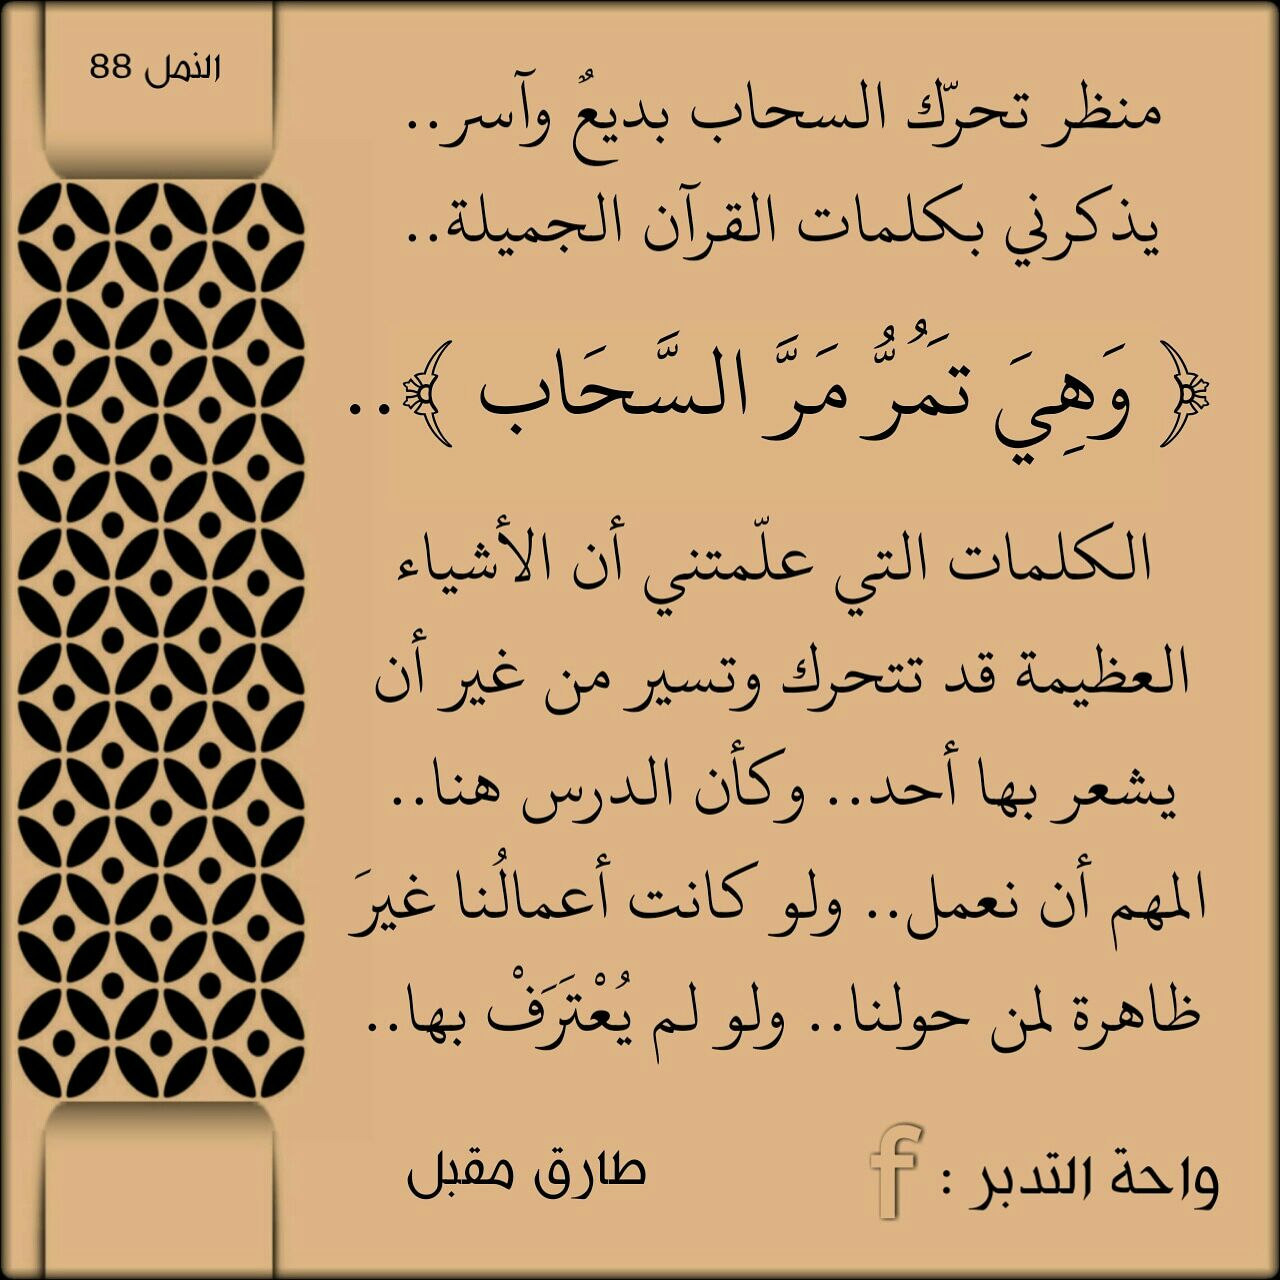 النمل 88
منظر تحرّك السحاب بديعٌ وآسر..
يذكرني بكلمات القرآن الجميلة..
﴿ وَهِيَ تَمُرُّ مَرَّ السَّحَاب ﴾..
الكلمات التي علّمتني أن الأشياء
العظيمة قد تتحرك وتسير من غير أن
يشعر بها أحد.. وكأن الدرس هنا..
المهم أن نعمل.. ولو كانت أعمالُنا غيرَ
ظاهرة لمن حولنا.. ولو لم يُعْتَرَفْ بها..
واحة التدبر : f طارق مقبل